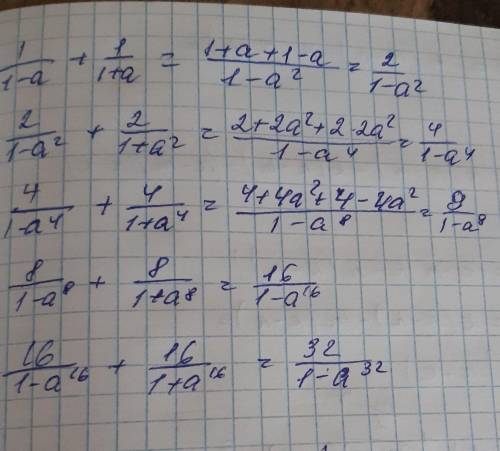 1/(1-a) + 1/(1+a) = (1+a+1-a)/(1-a²) = 2/(1-a²)
2/(1-a²) + 2/(1+a²) = (2+2a²+2-2a²)/(1-a⁴) = 4/(1-a⁴)
4/(1-a⁴) + 4/(1+a⁴) = (4+4a²+4-4a²)/(1-a⁸) = 8/(1-a⁸)
8/(1-a⁸) + 8/(1+a⁸) = 16/(1-a¹⁶)
16/(1-a¹⁶) + 16/(1+a¹⁶) = 32/(1-a³²)